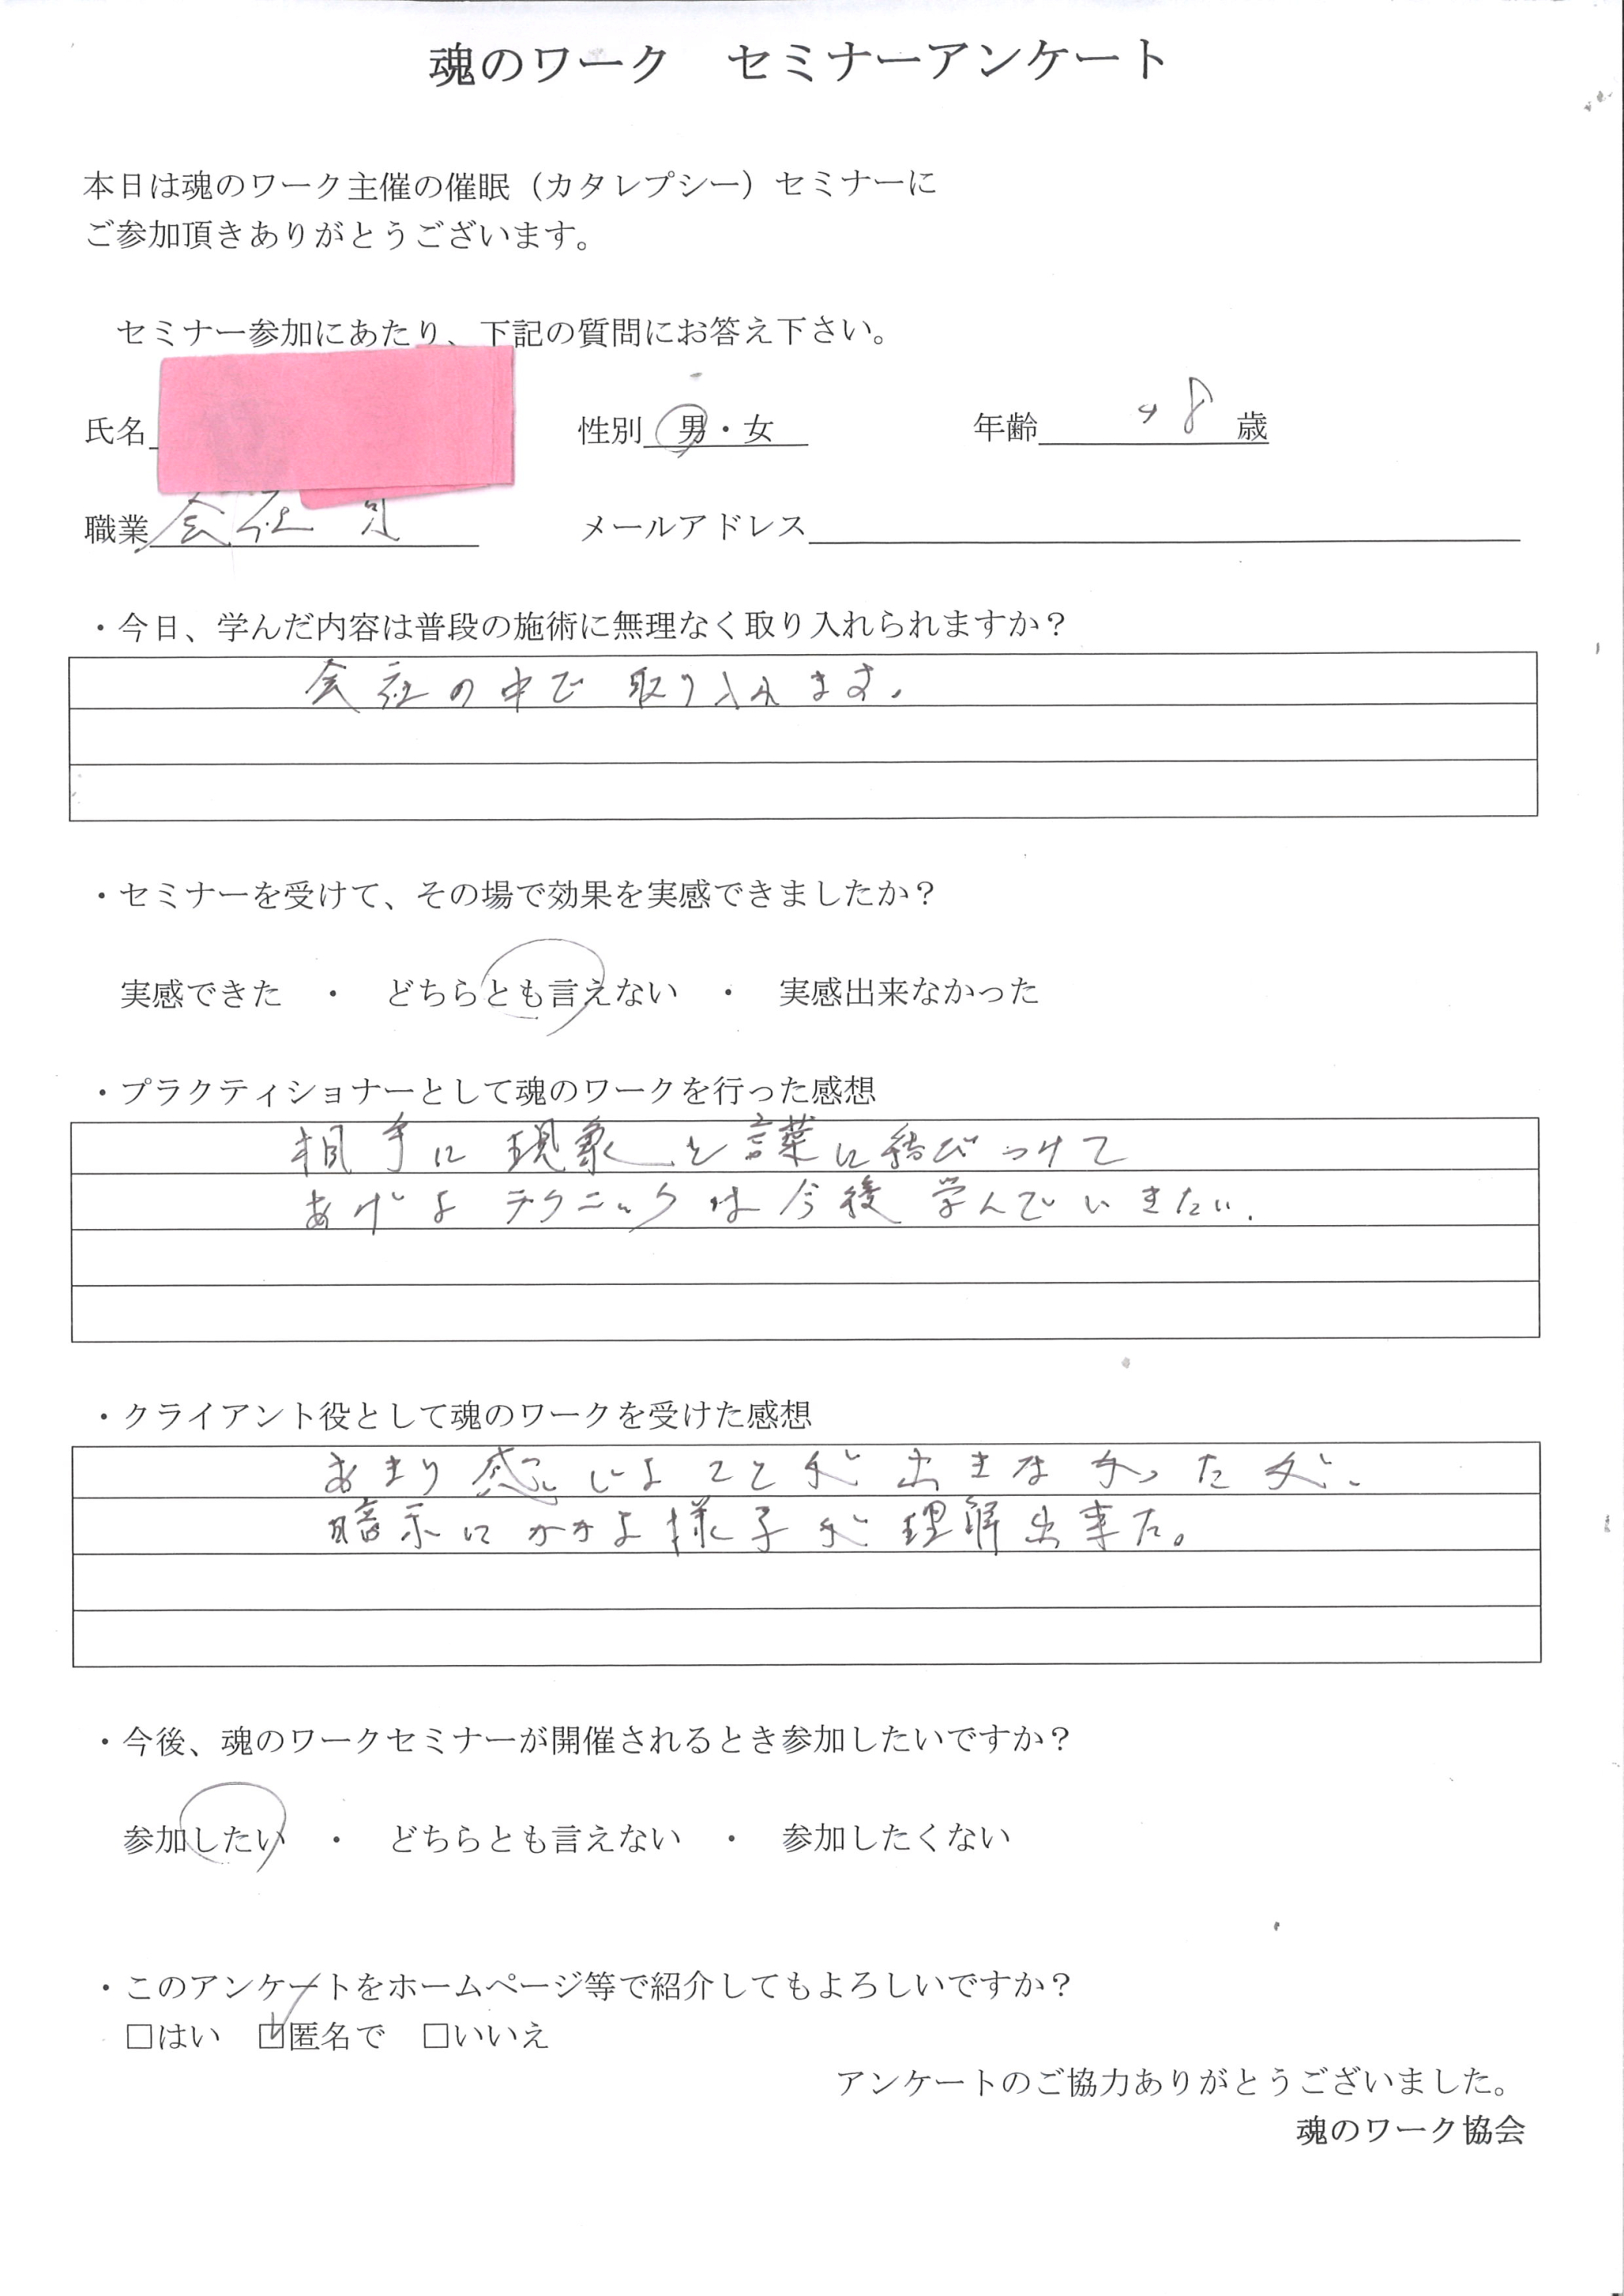 魂のワーク　セミナーアンケート
本日は魂のワーク主催の催眠（カタレプシー）セミナーに
ご参加頂きありがとうございます。
セミナー参加にあたり、下記の質問にお答え下さい。
氏名　性別　男・女　年齢　48　歳
職業　会社員　メールアドレス
・今日、学んだ内容は普段の施術に無理なく取り入れられますか？
会社の中で取り入れます。
・セミナーを受けて、その場で効果を実感できましたか？
実感できた　・　どちらとも言えない　・　実感出来なかった
・プラクティショナーとして魂のワークを行った感想
相手に現象を言葉に結びつけて
あげるテクニックは今後学んでいきたい.
・クライアント役として魂のワークを受けた感想
あまり感じることが出きなかったが、
暗示にかかる様子が理解出来た。
・今後、魂のワークセミナーが開催されるとき参加したいですか？
参加したい　・　どちらとも言えない　・　参加したくない
・このアンケートをホームページ等で紹介してもよろしいですか？
□はい　☑匿名で　□いいえ
アンケートのご協力ありがとうございました。
魂のワーク協会